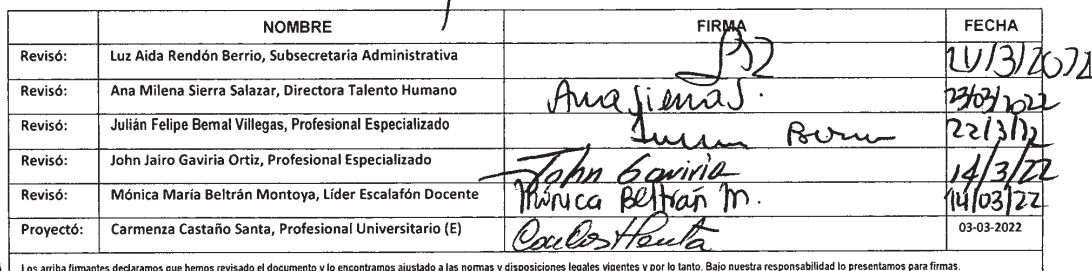 NOMBRE FIRMA FECHA
Revisó: Luz Aida Rendón Berrio, Subsecretaria Administrativa
Revisó: Ana Milena Sierra Salazar, Directora Talento Humano Ana Sierra S. 23/03/2022
Revisó: Julián Felipe Bernal Villegas, Profesional Especializado 22/3/22
Revisó: John Jairo Gaviria Ortiz, Profesional Especializado John Gaviria 14/3/22
Revisó: Mónica María Beltrán Montoya, Líder Escalafón Docente Mónica Beltrán M. 14/03/22
Proyectó: Carmenza Castaño Santa, Profesional Universitario (E) 03-03-2022
Los arriba firmantes declaramos que hemos revisado el documento y lo encontramos ajustado a las normas y disposiciones legales vigentes y por lo tanto. Bajo nuestra responsabilidad lo presentamos para firmas.